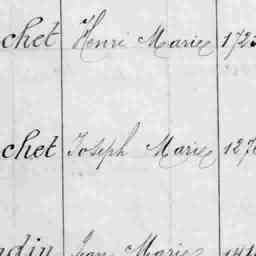 chet Henri Marie 172
chet Joseph Marie 127
ndin Jean Marie